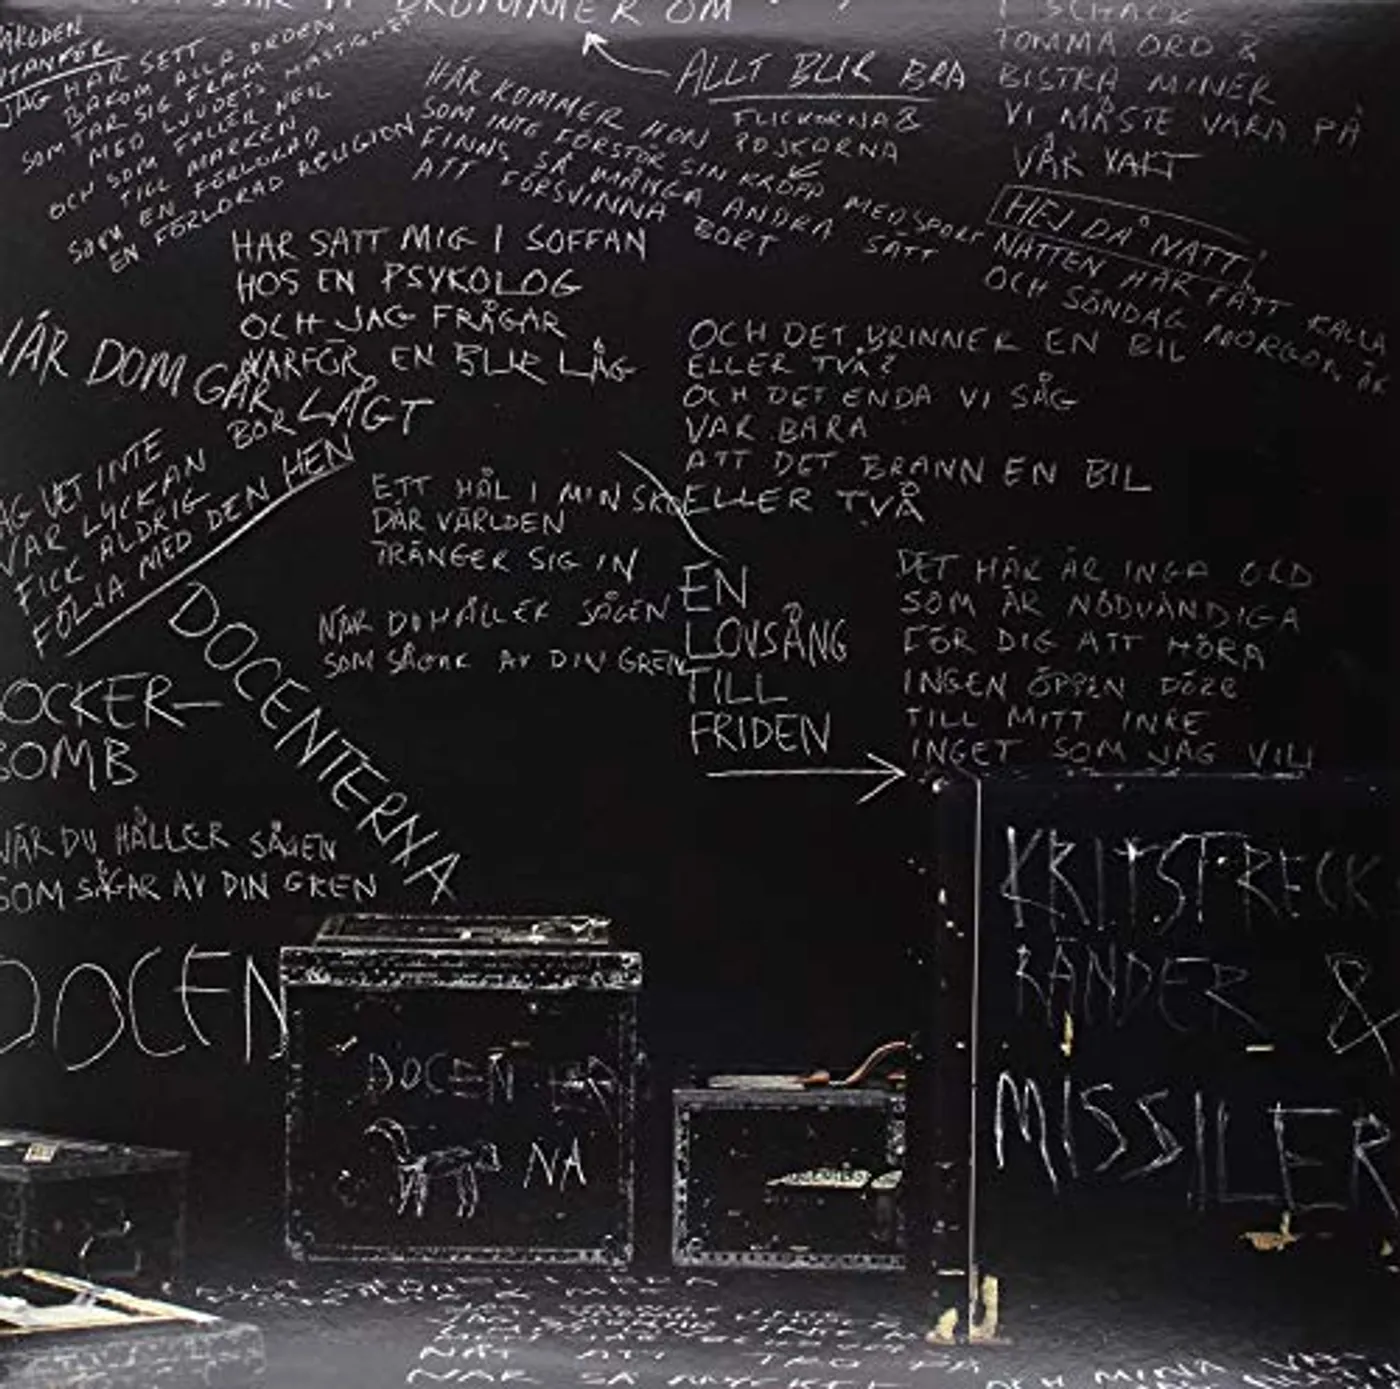 DRÖMMER OM
ALLT BLIR BRA
FLICKORNA &
POJKARNA
I SCHACK
TOMMA ORD &
BISTRA MINER
VI MÅSTE VARA PÅ
VÅR VAKT
HEJ DÅ NATT!
NATTEN HAR FÅTT KALLA
OCH SÖNDAG MORGON ÄR
VÄRLDEN
UTANFÖR
JAG HAR SETT
BAKOM ALLA ORDEN
SOM TAR SIG FRAM
MED LJUDETS HASTIGHET
OCH SOM FALLER NER
TILL MARKEN
SOM EN FÖRLORAD
EN FÖRLORAD RELIGION
HÄR KOMMER HON
SOM INTE FÖRSTÅR SIN KROPP MEDSPORT
FINNS SÅ MÅNGA ANDRA SÄTT
ATT FÖRSVINNA BORT
HAR SATT MIG I SOFFAN
HOS EN PSYKOLOG
OCH JAG FRÅGAR
VARFÖR EN BLIR LÅG
NÄR DOM GÅR LÅGT
JAG VET INTE
VAR LYCKAN BOR
FICK ALDRIG
FÖLJA MED DEN HEM
OCH DET BRINNER EN BIL
ELLER TVÅ?
OCH DET ENDA VI SÅG
VAR BARA
ATT DET BRANN EN BIL
ELLER TVÅ
ETT HÅL I MIN SKO
DÄR VÄRLDEN
TRÄNGER SIG IN
NÄR DU HÅLLER SÅGEN
SOM SÅGAR AV DIN GREN
EN
LOVSÅNG
TILL
FRIDEN
DET HÄR ÄR INGA ORD
SOM ÄR NÖDVÄNDIGA
FÖR DIG ATT HÖRA
INGEN ÖPPEN DÖRR
TILL MITT INRE
INGET SOM JAG VILL
DOCENTERNA
SOCKER-
BOMB
NÄR DU HÅLLER SÅGEN
SOM SÅGAR AV DIN GREN
DOCEN
DOCENTER
NA
KRITSTRECK
RÄNDER &
MISSILER
NÄT ATT TRO PÅ
NÄR SÅ MYCKET
OCH MINA